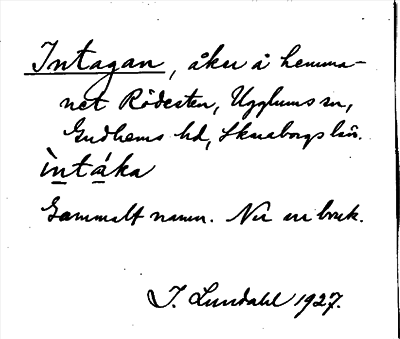 Intagan, åker å hemma-
net Rödesten, Ugglums sn,
Gudhems hd, Skaraborgs län.
ìntáka
Gammalt namn. Nu ur bruk.
J. Lundahl 1927.